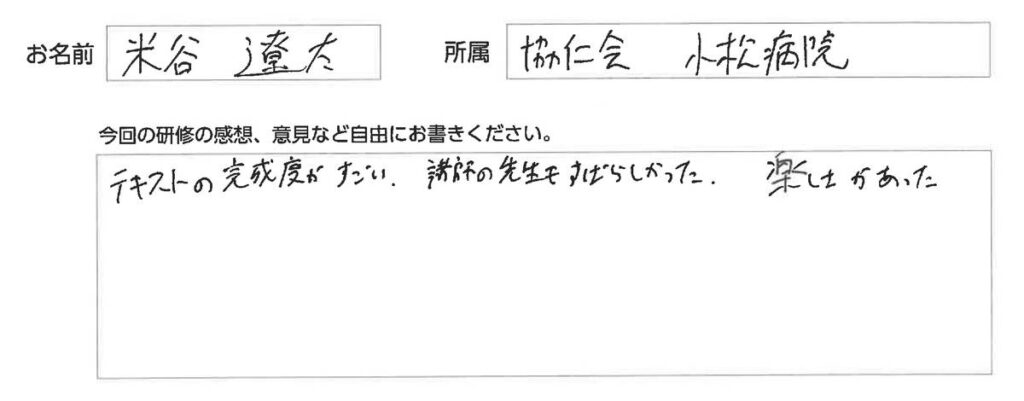 お名前 米谷 遼太 所属 協仁会 小松病院
今回の研修の感想、意見など自由にお書きください。
テキストの完成度がすごい. 講師の先生もすばらしかった. 楽しさがあった